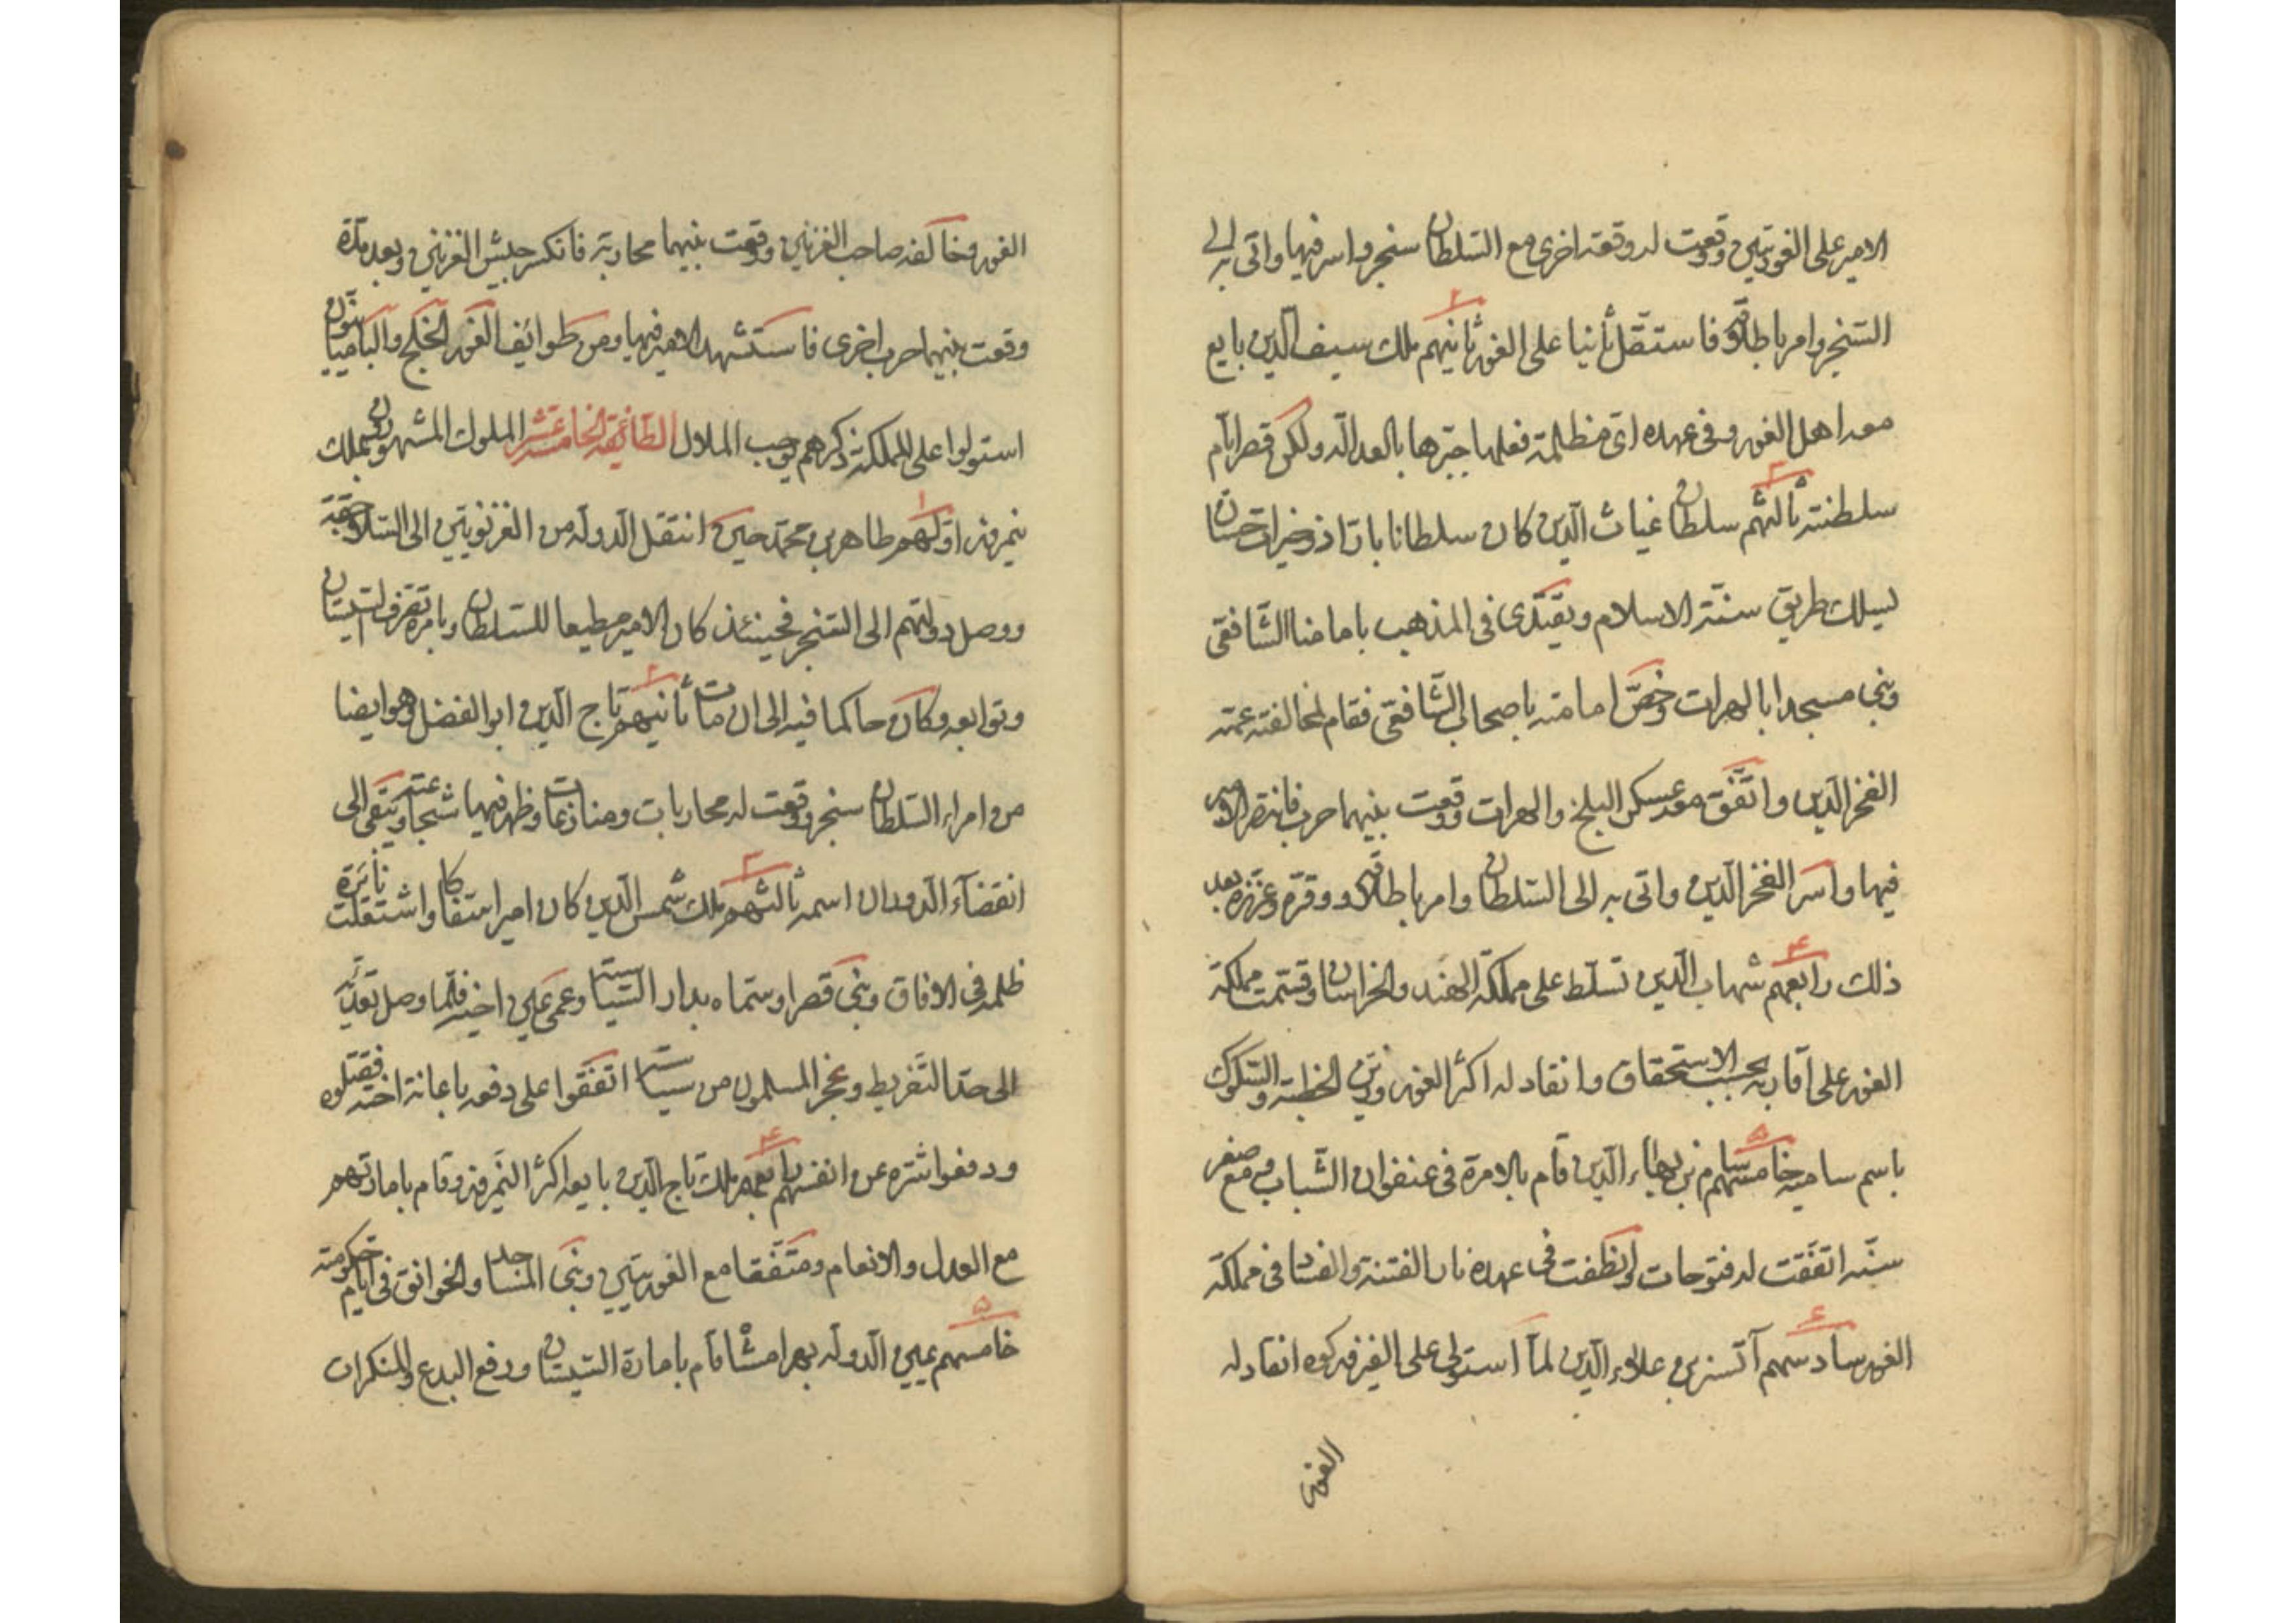 الامير على الغوريّين ووقعت له وقعة اخرى مع السّلطان سنجر واسر فيها واتى به الى
السّنجر وامر باطلاقه فاستقلّ ثانيا على الغور ثانيهم ملك سيف الدّين بايع
معه اهل الغور وفى عهده اى مظلمة فعلها جبّرها بالعدالة ولكن قصر ايّام
سلطنته ثالثهم سلطان غياث الدّين كان سلطانا باذّا ذو خيرات حسان
يسلك طريق سنّة الاسلام ويقتدى فى المذهب بامامنا الشّافعى
وبنى مسجدا بالهرات وخصّ امامته باصحاب الشّافعى فقام لمخالفته عمّه
الفخر الدّين واتّفق معه عسكر البلخ والهرات ووقعت بينهما حرب فانتصر الامير
فيها واسر الفخر الدّين واتى به الى السّلطان وامر باطلاقه ووقّره وعزّزه بعد
ذلك رابعهم شهاب الدّين تسلّط على مملكة الهند والخراسان وقسّمت مملكة
الغور على اقاربه بحسب الاستحقاق وانقاد له اكثر الغور وزيّن الخطبة والسّكوك
باسم ساميه خامسهم سام بن بهاء الدّين قام بالامرة فى عنفوان الشّباب ومع صغر
سنّه اتّفقت له فتوحات وانطفت فى عهده نار الفتنة والفساد فى مملكة
الغور سادسهم آتسز بن علاء الدّين لمّا استولى على الفيروزكوه انقاد له
الغور
الغور وخالفه صاحب الغزنين ووقعت بينهما محاربة فانكسر جيش الغزنين وبعد مدّة
وقعت بينهما حرب اخرى فاستشهد الامير فيها ومن طوائف الغور الخلج والباميانيّون
استولوا على المملكة ذكرهم يوجب الملال الطّائفة الخامسة عشر الملوك المشهورون بملك
نيمروز اوّلهم طاهر بن محمّد حين انتقل الدولة من الغزنويّين الى السّلاجقة
ووصل دولتهم الى السّنجر فحينئذ كان الامير مطيعا للسّلطان وبامره تصرّف السّيستان
وتوابعه وكان حاكما فيه الى ان مات ثانيهم تاج الدّين ابو الفضل وهو ايضا
من امراء السّلطان سنجر ووقعت له محاربات ومنازعات وظهر فيها شجاعته وبقى الى
انقضاء الدوران اسمه ثالثهم ملك شمس الدّين كان اميرا سفّاكا واشتعلت نائرة
ظلمه فى الافاق وبنى قصرا وسمّاه بدار السّياسة وعمى عين اخيه فلمّا وصل تعدّيه
الى حدّ التّفريط وعجز المسلمون من سياسته اتّفقوا على دفعه باعانة اخته فقتلوه
ودفعوا شرّه عن انفسهم رابعهم ملك تاج الدّين بايعه اكثر النّيمروز وقام بامارتهم
مع العدل والانعام ومتّفقا مع الغوريّين وبنى المساجد والخوانق فى ايّام حكومته
خامسهم يمين الدّولة بهرامشاه قام بامارة السّيستان ورفع البدع والمنكرات